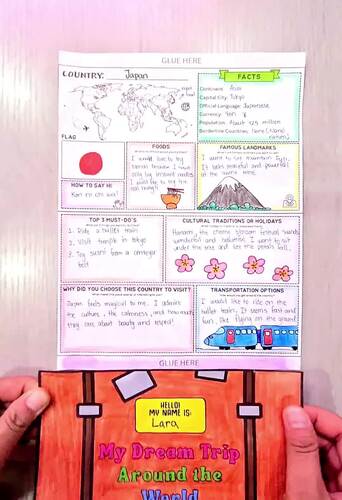 GLUE HERE
COUNTRY: Japan
FACTS
Continent: Asia
Capital City: Tokyo
Official Language: Japanese
Currency: Yen ¥
Population: About 123 million
Borderline Countries: None
FLAG
FOODS
I would love to try
ramen because I have
only try instant noodles.
I want to try the
real thing!!
FAMOUS LANDMARKS
I want to see Mountain Fuji.
It looks peaceful and powerful
at the same time.
HOW TO SAY HI
Kon ni chi wa!
TOP 3 MUST-DO'S
1. Ride a bullet train
2. Visit temple in tokyo
3. Try sushi from a conveyor
belt
CULTURAL TRADITIONS OR HOLIDAYS
Hanami, the cherry blossom festival sounds
wonderful and
I want to sit
under the tree and see the petals fall.
WHY DID YOU CHOOSE THIS COUNTRY TO VISIT?
Japan feels magical to me. I admire
the culture, the calmness, and how much
they care about beauty and respect!
TRANSPORTATION OPTIONS
I would like to ride on the
bullet train. It seems fast and
fun, like flying on the ground!
GLUE HERE
HELLO!
MY NAME IS:
Lara
My Dream Trip
Around the
World